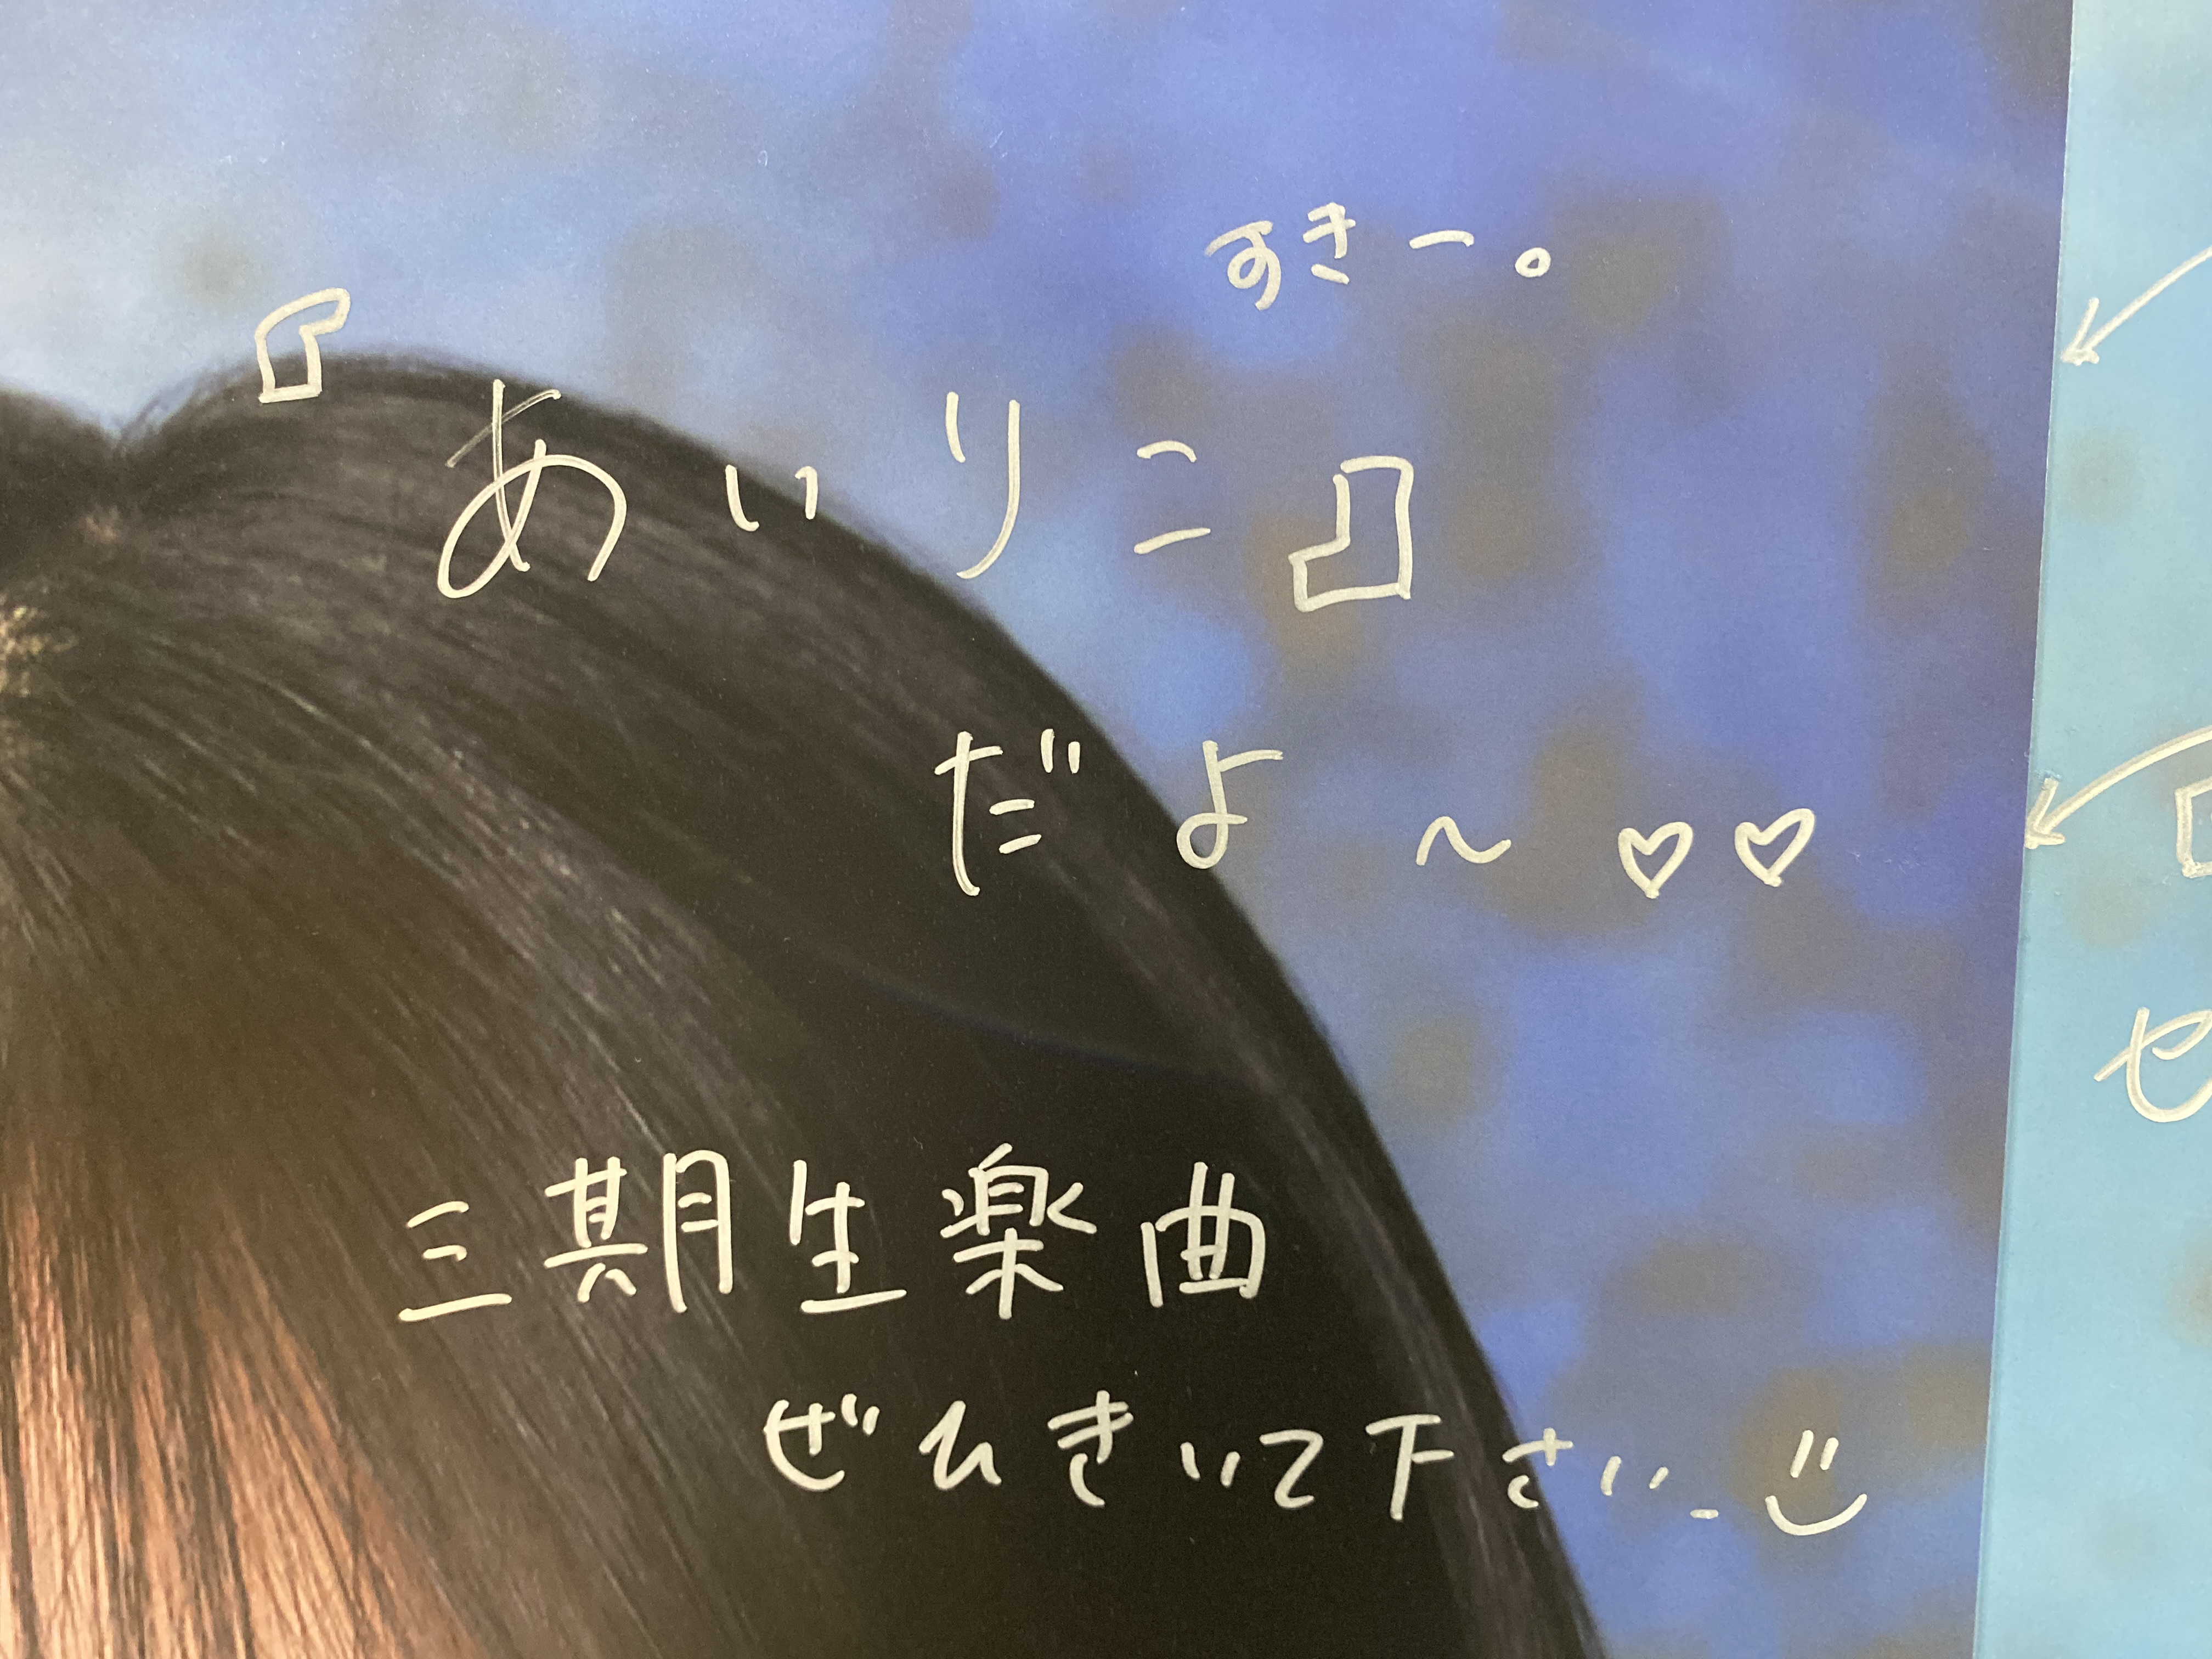 すきー。
『あいりこ』
だよ〜♡♡
三期生楽曲
ぜひきいて下さい_
セ